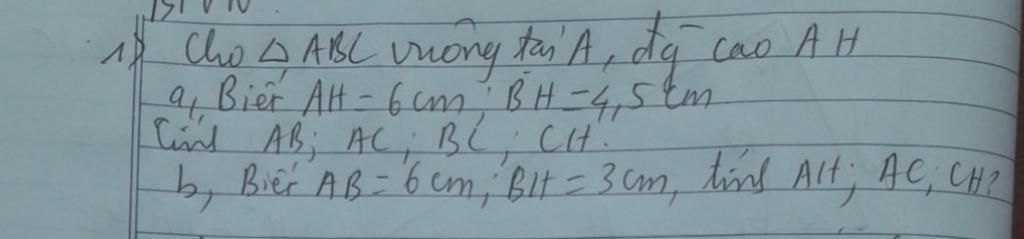 1) Cho △ ABC vuông tại A, đg cao AH
a, Biết AH = 6 cm; BH = 4,5 cm
Tính AB; AC; BC; CH.
b, Biết AB = 6 cm; BH = 3 cm, tính AH; AC; CH?